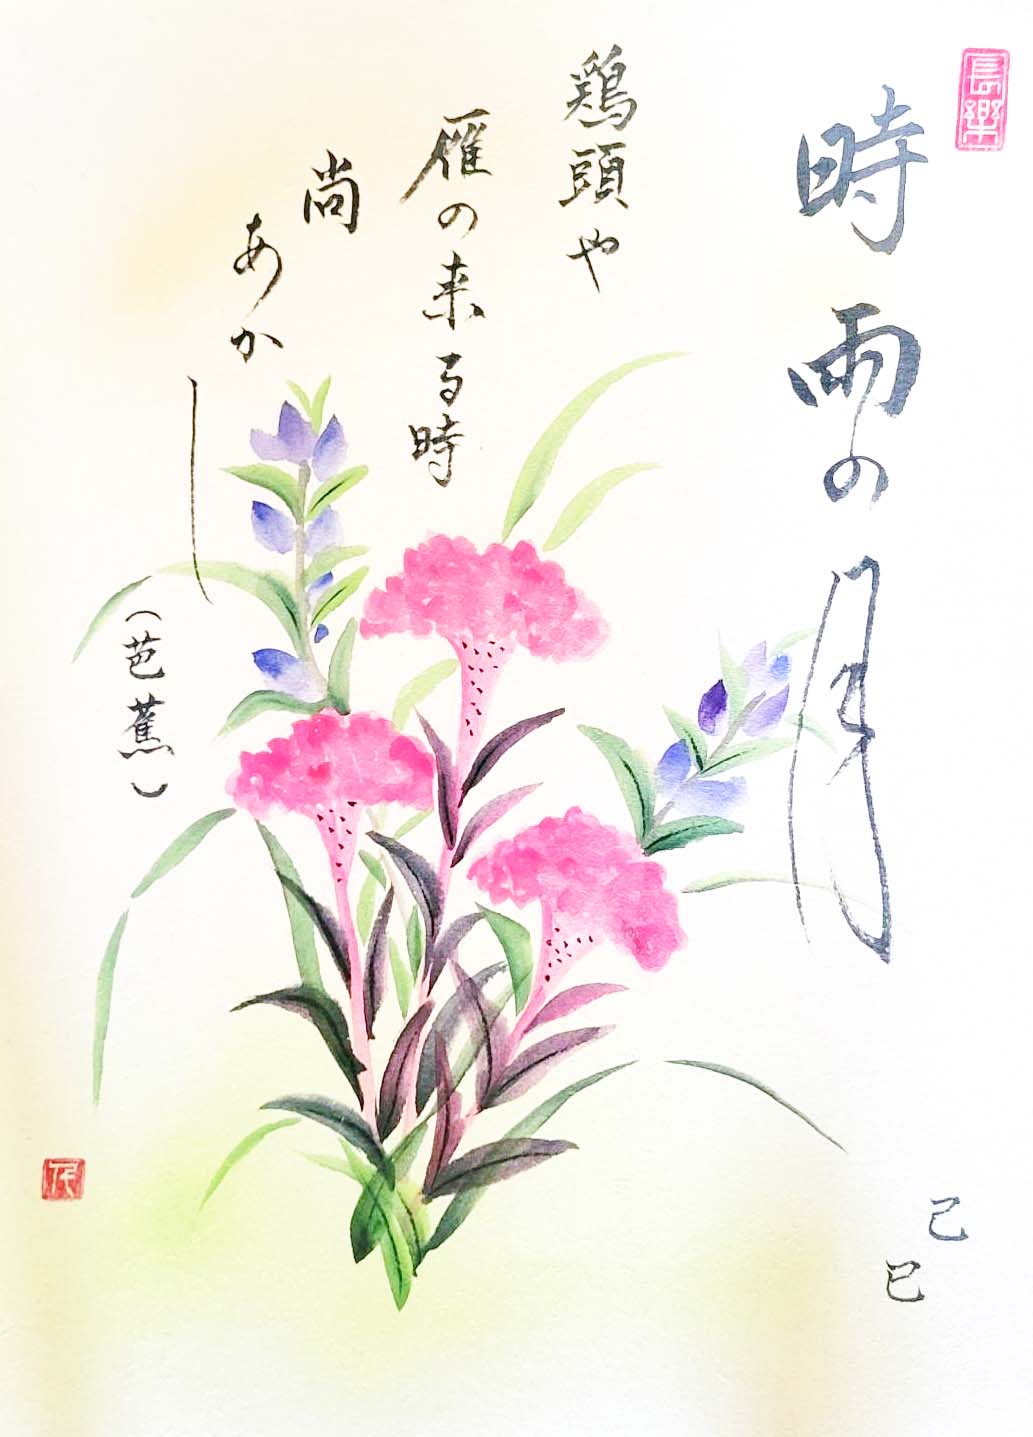 長樂
時雨の月
己巳
鶏頭や
雁の来る時
尚
あか
し
（芭蕉）